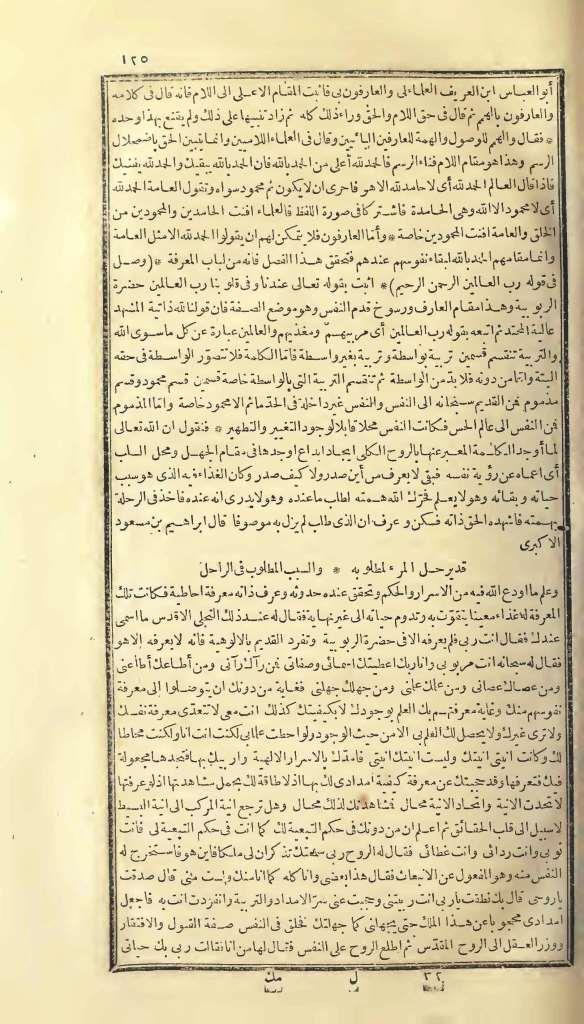 ١٢٥
أبو العباس ابن العريف العلماء لى والعارفون بى فأثبت المقام الاعلى الى اللام فانه قال فى كلامه
والعارفون بالهم ثم قال فى حق اللام والحق وراء ذلك كله ثم زاد تنبيها على ذلك ولم يقنع بهذا وحده
* فقال والهم للوصول والهمة للعارفين البائيين وقال فى العلماء اللاميين وانما يتبين الحق باضمحلال
الرسم وهذا هو مقام اللام فناء الرسم فالحمد لله أعلى من الحمد بالله فان الحمد بالله يبقيك والحمد لله يفنيك
فاذا قال العالم الحمد لله أى لا حامد لله الا هو فاحرى ان لا يكون ثم محمود سواه وتقول العامة الحمد لله
أى لا محمود الا الله وهى الحامدة فاشتركا فى صورة اللفظ فالعلماء افنت الحامدين والمحمودين من
الخلق والعامة افنت المحمودين خاصة * وأما العارفون فلا يتمكن لهم ان يقولوا الحمد لله الا مثل العامة
وانما مقامهم الحمد بالله لبقاء نفوسهم عندهم فتحقق هذا الفصل فانه من لباب المعرفة * (وصل
فى قوله رب العالمين الرحمن الرحيم) * اثبت بقوله تعالى عندنا وفى قلوبنا رب العالمين حضرة
الربوبية وهذا مقام العارف ورسوخ قدم النفس وهو موضع الصفة فان قولنا لله ذاتية المشهد
عالية المحتد ثم اتبعه بقوله رب العالمين أى مربيهم ومغذيهم والعالمين عبارة عن كل ما سوى الله
والتربية تنقسم قسمين تربية بواسطة وتربية بغير واسطة فأما الكلمة فلا تتصور الواسطة فى حقه
البتة واما من دونه فلا بد من الواسطة ثم تنقسم التربية التى بالواسطة خاصة قسمين قسم محمود وقسم
مذموم فمن القديم سبحانه الى النفس والنفس غير داخلة فى الحد ما ثم الا محمود خاصة واما المذموم
فمن النفس الى عالم الحس فكانت النفس محلا قابلا لوجود التغيير والتطهير * فنقول ان الله تعالى
لما أوجد الكلمة المعبر عنها بالروح الكلى ايجاد ابداع اوجدها فى مقام الجهل ومحل السلب
أى اعماه عن رؤية نفسه فبقى لا يعرف من أين صدر ولا كيف صدر وكان الغذاء فيه الذى هو سبب
حياته وبقائه وهو لا يعلم فحرك الله همته لطلب ما عنده وهو لا يدرى انه عنده فأخذ فى الرحلة
بهمته فاشهده الحق ذاته فسكن وعرف ان الذى طلب لم يزل به موصوفا قال ابراهيم بن مسعود
الاكبرى
قد يرحل المرء لمطلوبه * والسبب المطلوب فى الراحل
وعلم ما اودع الله فيه من الاسرار والحكم وتحقق عنده حدوثه وعرف ذاته معرفة احاطية فكانت تلك
المعرفة له غذاء معينا يتقوت به وتدوم حياته الى غير نهاية فقال له عند ذلك التجلى الاقدس ما اسمى
عندك فقال انت ربى فلم يعرفه الا فى حضرة الربوبية وتفرد القديم بالالوهية فانه لا يعرفه الا هو
فقال له سبحانه انت مربوبى وانا ربك اعطيتك اسمائى وصفاتى فمن رآك رآنى ومن أطاعك أطاعنى
ومن عصاك عصانى ومن علمك علمنى ومن جهلك جهلنى فغاية من دونك ان يتوصلوا الى معرفة
نفوسهم منك وغاية معرفتهم بك العلم بوجودك لا بكيفيتك كذلك انت معى لا تتعدى معرفة نفسك
ولا ترى غيرك ولا يحصل لك العلم بى الا من حيث الوجود ولو احطت علما بى لكنت انت انا ولكنت محاطا
لك وكانت انيتى انيتك وليست انيتك انيتى فامدك بالاسرار الالهية واربيك بها فتجدها مجعولة
فيك فتعرفها وقد حجبتك عن معرفة كيفية امدادى لك بها اذ لا طاقة لك بحمل مشاهدتها اذ لو عرفتها
لاتحدت الانية واتحاد الانية محال فمشاهدتك لذلك محال وهل ترجع انية المركب الى انية البسيط
لا سبيل الى قلب الحقائق ثم اعلم ان من دونك فى حكم التبعية لك كما انت فى حكم التبعية لى فانت
ثوبى وانت ردائى وانت غطائى فقال له الروح ربى سمعتك تذكر ان لى ملكا فاين هو فاستخرج له
النفس منه وهو المفعول عن الانبعاث فقال هذا بعضى وانا كله كما انا منك ولست منى قال صدقت
يا روحى قال بك نطقت يا ربى انت ربيتنى وحجبت عنى سر الامداد والتربية وانفردت انت به فاجعل
امدادى محجوبا عن هذا الملك حتى يجهلنى كما جهلتك فخلق فى النفس صفة القبول والافتقار
ووزر العقل الى الروح المقدس ثم اطلع الروح على النفس فقال لها من انا فقالت ربى بك حياتى
٣٢ ل مك